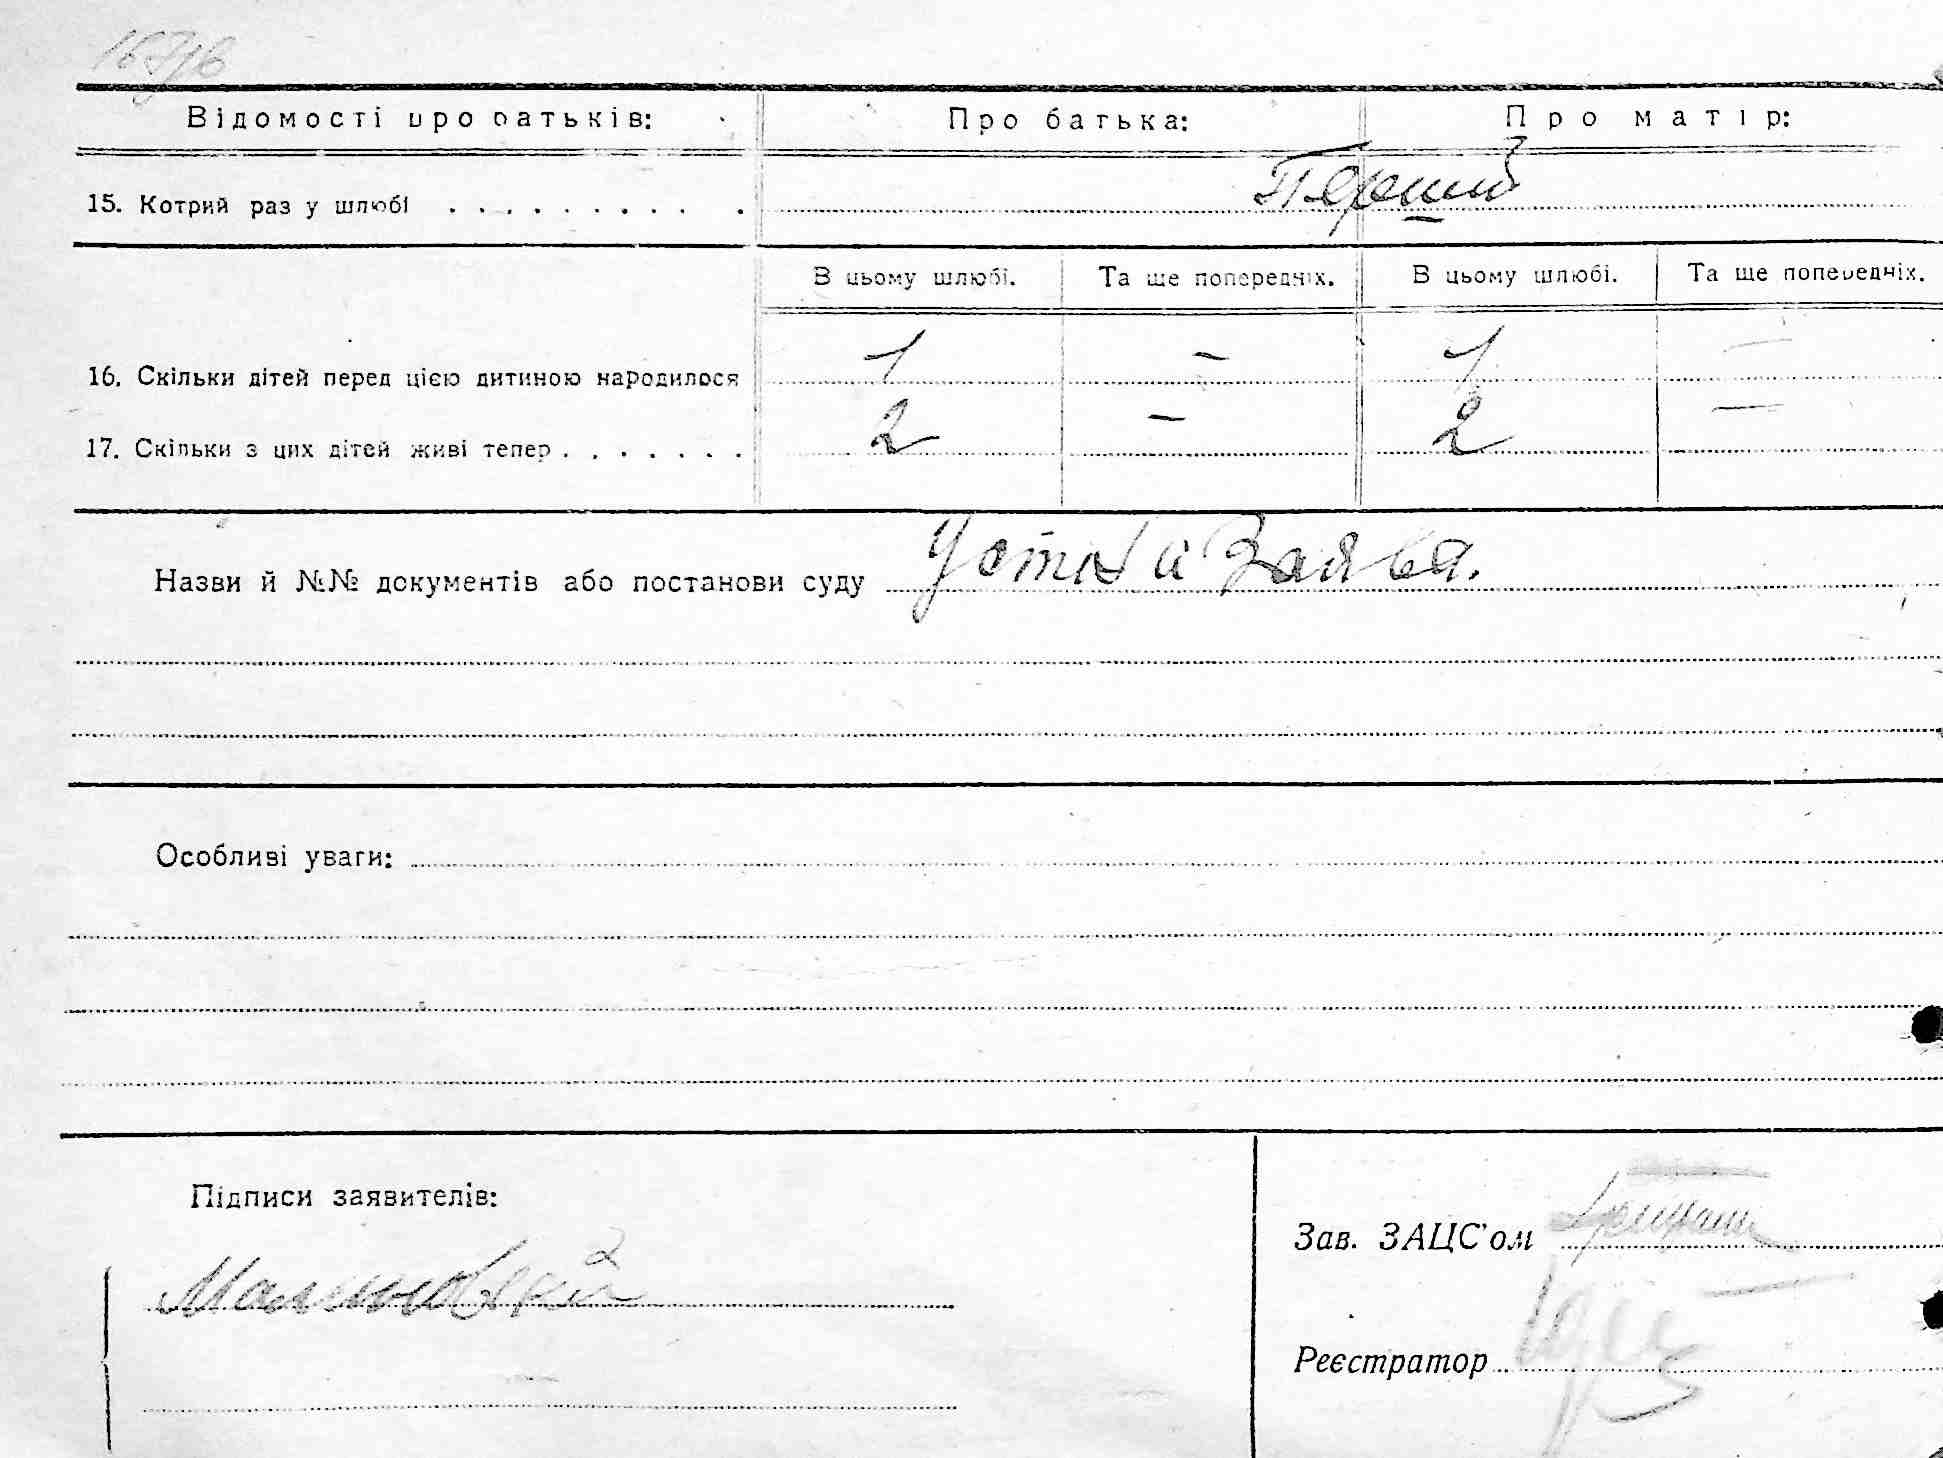 Відомості про батьків: Про батька: Про матір:
15. Котрий раз у шлюбі . . . . . . . . . . . Перший
В цьому шлюбі. Та ще попередніх. В цьому шлюбі. Та ще попередніх.
16. Скільки дітей перед цією дитиною народилося 1 – 1 –
17. Скільки з цих дітей живі тепер . . . . . . . 2 – 2 –
Назви й №№ документів або постанови суду Устна Заява.
Особливі уваги:
Підписи заявителів:
Зав. ЗАЦС'ом
Малиновский
Реєстратор